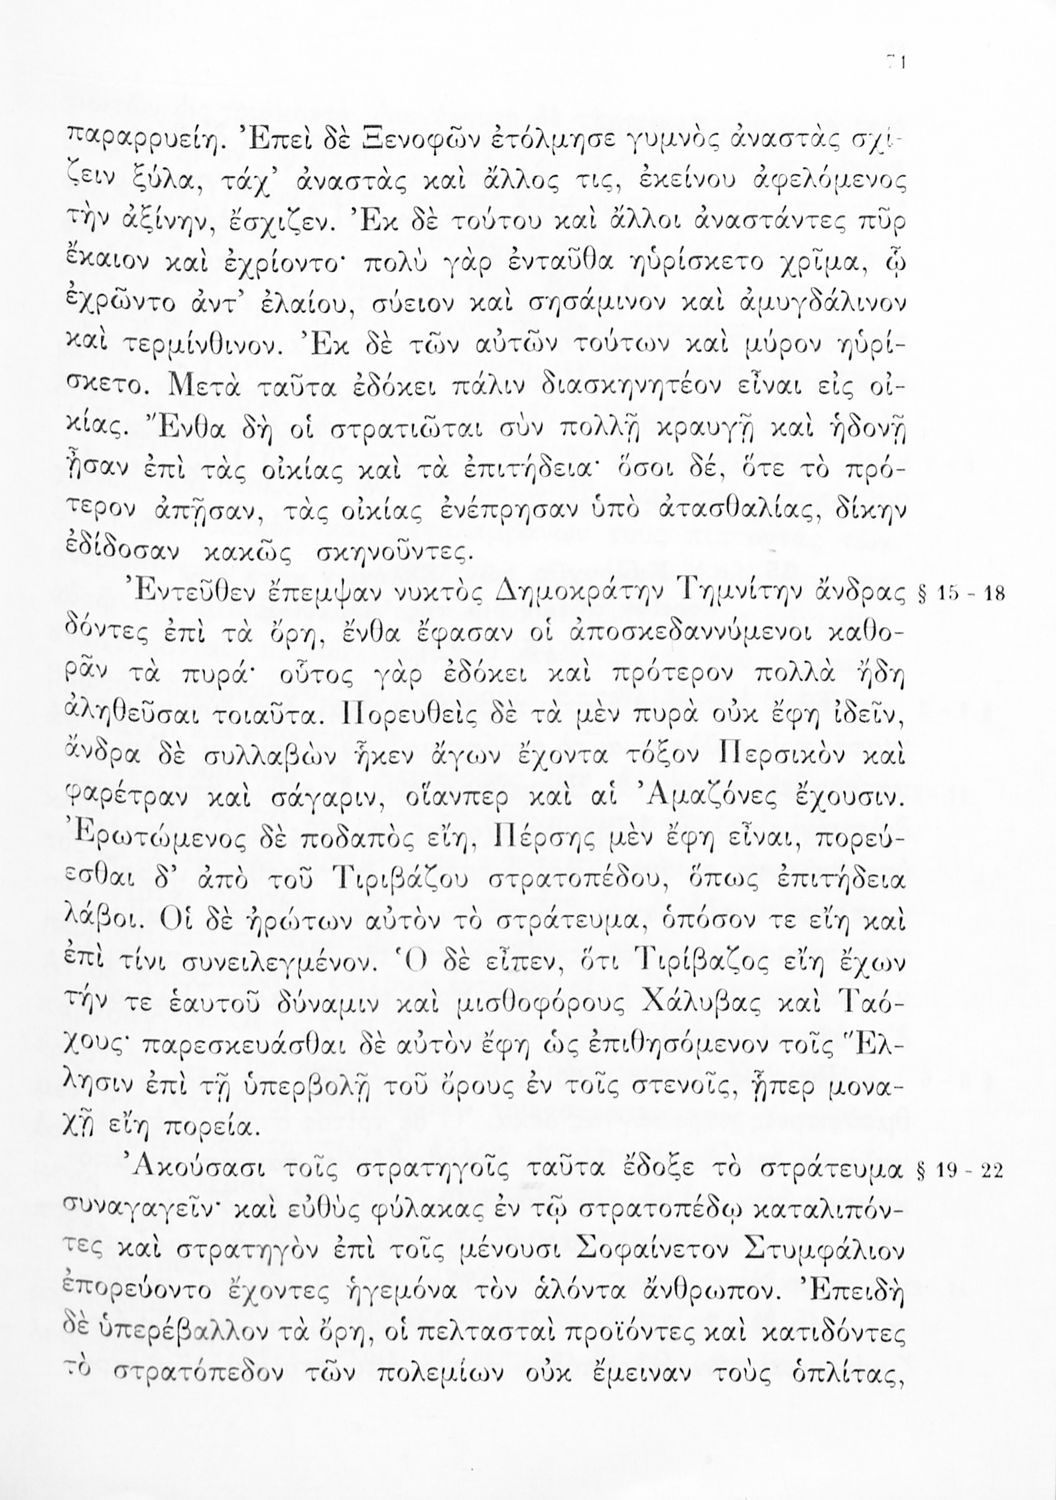 71
παραρρυείη. Ἐπεὶ δὲ Ξενοφῶν ἐτόλμησε γυμνὸς ἀναστὰς σχί-
ζειν ξύλα, τάχ’ ἀναστὰς καὶ ἄλλος τις, ἐκείνου ἀφελόμενος
τὴν ἀξίνην, ἔσχιζεν. Ἐκ δὲ τούτου καὶ ἄλλοι ἀναστάντες πῦρ
ἔκαιον καὶ ἐχρίοντο· πολὺ γὰρ ἐνταῦθα ηὑρίσκετο χρῖμα, ᾧ
ἐχρῶντο ἀντ’ ἐλαίου, σύειον καὶ σησάμινον καὶ ἀμυγδάλινον
καὶ τερμίνθινον. Ἐκ δὲ τῶν αὐτῶν τούτων καὶ μύρον ηὑρί-
σκετο. Μετὰ ταῦτα ἐδόκει πάλιν διασκηνητέον εἶναι εἰς οἰ-
κίας. Ἔνθα δὴ οἱ στρατιῶται σὺν πολλῇ κραυγῇ καὶ ἡδονῇ
ᾖσαν ἐπὶ τὰς οἰκίας καὶ τὰ ἐπιτήδεια· ὅσοι δέ, ὅτε τὸ πρό-
τερον ἀπῇσαν, τὰς οἰκίας ἐνέπρησαν ὑπὸ ἀτασθαλίας, δίκην
ἐδίδοσαν κακῶς σκηνοῦντες.
Ἐντεῦθεν ἔπεμψαν νυκτὸς Δημοκράτην Τημνίτην ἄνδρας § 15 - 18
δόντες ἐπὶ τὰ ὄρη, ἔνθα ἔφασαν οἱ ἀποσκεδαννύμενοι καθο-
ρᾶν τὰ πυρά· οὗτος γὰρ ἐδόκει καὶ πρότερον πολλὰ ἤδη
ἀληθεῦσαι τοιαῦτα. Πορευθεὶς δὲ τὰ μὲν πυρὰ οὐκ ἔφη ἰδεῖν,
ἄνδρα δὲ συλλαβὼν ἧκεν ἄγων ἔχοντα τόξον Περσικὸν καὶ
φαρέτραν καὶ σάγαριν, οἵανπερ καὶ αἱ Ἀμαζόνες ἔχουσιν.
Ἐρωτώμενος δὲ ποδαπὸς εἴη, Πέρσης μὲν ἔφη εἶναι, πορεύ-
εσθαι δ’ ἀπὸ τοῦ Τιριβάζου στρατοπέδου, ὅπως ἐπιτήδεια
λάβοι. Οἱ δὲ ἠρώτων αὐτὸν τὸ στράτευμα, ὁπόσον τε εἴη καὶ
ἐπὶ τίνι συνειλεγμένον. Ὁ δὲ εἶπεν, ὅτι Τιρίβαζος εἴη ἔχων
τήν τε ἑαυτοῦ δύναμιν καὶ μισθοφόρους Χάλυβας καὶ Ταό-
χους· παρεσκευάσθαι δὲ αὐτὸν ἔφη ὡς ἐπιθησόμενον τοῖς Ἕλ-
λησιν ἐπὶ τῇ ὑπερβολῇ τοῦ ὄρους ἐν τοῖς στενοῖς, ᾗπερ μονα-
χῇ εἴη πορεία.
Ἀκούσασι τοῖς στρατηγοῖς ταῦτα ἔδοξε τὸ στράτευμα § 19 - 22
συναγαγεῖν· καὶ εὐθὺς φύλακας ἐν τῷ στρατοπέδῳ καταλιπόν-
τες καὶ στρατηγὸν ἐπὶ τοῖς μένουσι Σοφαίνετον Στυμφάλιον
ἐπορεύοντο ἔχοντες ἡγεμόνα τὸν ἁλόντα ἄνθρωπον. Ἐπειδὴ
δὲ ὑπερέβαλλον τὰ ὄρη, οἱ πελτασταὶ προϊόντες καὶ κατιδόντες
τὸ στρατόπεδον τῶν πολεμίων οὐκ ἔμειναν τοὺς ὁπλίτας,